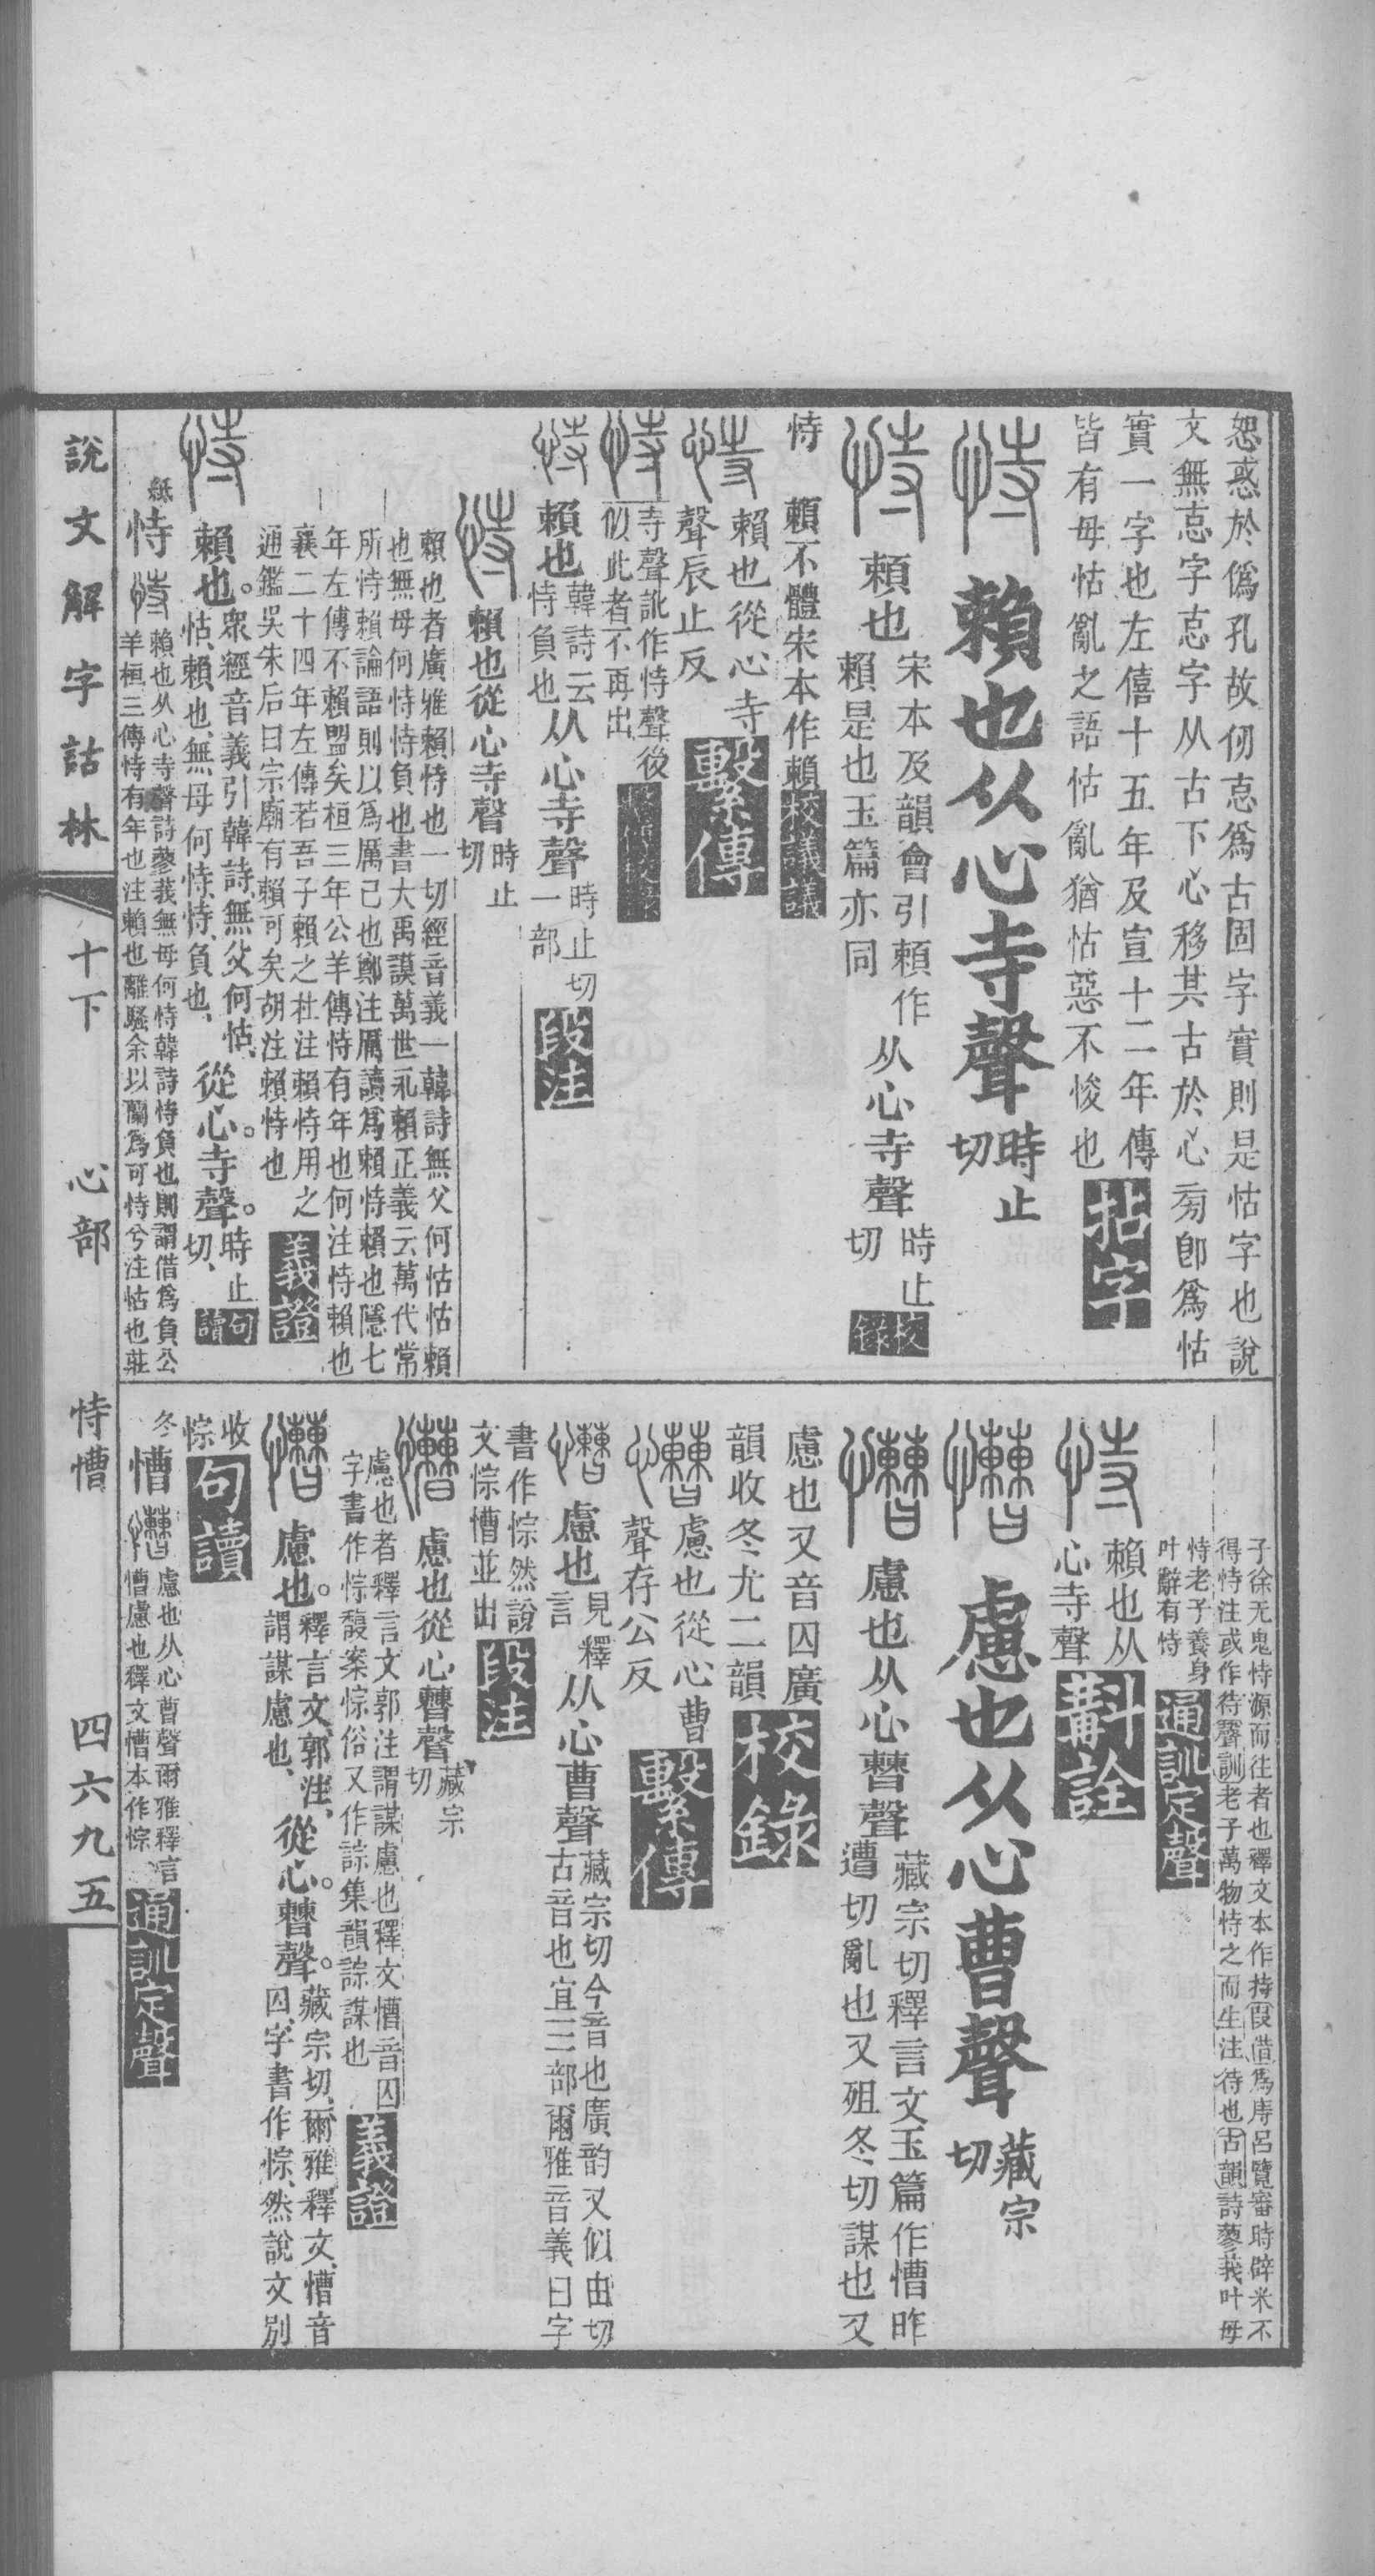 恕惑於僞孔故仞㤕爲古固字實則是怙字也說
文無㤕字㤕字从古下心移其古於心㫄卽爲怙
實一字也左僖十五年及宣十二年傳
皆有毋怙亂之語怙亂猶怙惡不悛也 拈字
恃 賴也从心寺聲 時止切
恃 賴也 宋本及韻會引賴作
賴是也玉篇亦同 从心寺聲 時止切 校錄
恃 賴不體宋本作賴 校議議
恃 賴也從心寺
聲辰止反 繫傳
恃 寺聲訛作恃聲後
似此者不再出
恃 賴也 韓詩云恃負也 从心寺聲 時止切一部 段注
恃 賴也從心寺聲 時止切
賴也者廣雅賴恃也一切經音義一韓詩無父何怙怙賴
也無母何恃恃負也書大禹謨萬世永賴正義云萬代常
所恃賴論語則以爲厲己也鄭注厲讀爲賴恃賴也隱七
年左傳不賴盟矣桓三年公羊傳恃有年也何注恃賴也
襄二十四年左傳若吾子賴之杜注賴恃用之
通鑑吳朱后曰宗廟有賴可矣胡注賴恃也 義證
恃 賴也。衆經音義引韓詩、無父何怙、
怙、賴也、無母何恃、恃、負也、 從心。寺聲。 時止切、 句讀
紙 恃 恃 賴也从心寺聲詩蓼莪無母何恃韓詩恃負也則謂借爲負公
羊桓三傳恃有年也注賴也離騷余以蘭爲可恃兮注怙也莊
子徐无鬼恃源而往者也釋文本作持叚借爲庤呂覽審時辟米不
得恃注或作待聲訓老子萬物恃之而生注待也古韻詩蓼莪叶母
恃老子養身
叶辭有恃 通訓定聲
恃 賴也从
心寺聲 斠詮
慒 慮也从心曹聲 藏宗切
慒 慮也从心曹聲 藏宗切釋言文玉篇作慒昨
遭切亂也又殂冬切謀也又
慮也又音囚廣
韻收冬尤二韻 校錄
慒 慮也從心曹
聲存公反 繫傳
慒 慮也 見釋言 从心曹聲 藏宗切今音也廣韵又似由切
古音也宜三部爾雅音義曰字
書作悰然說
文悰慒並出 段注
慒 慮也從心曹聲 藏宗切
慮也者釋言文郭注謂謀慮也釋文慒音囚
字書作悰馥案悰俗又作誴集韻誴謀也 義證
慒 慮也。釋言文、郭注、
謂謀慮也、 從心。曹聲。 藏宗切、爾雅釋文、慒音
囚、字書作悰、然說文別
收悰 句讀
冬 慒 慒 慮也从心曹聲爾雅釋言
慒慮也釋文慒本作悰 通訓定聲
說文解字詁林 十下 心部 恃慒 四六九五